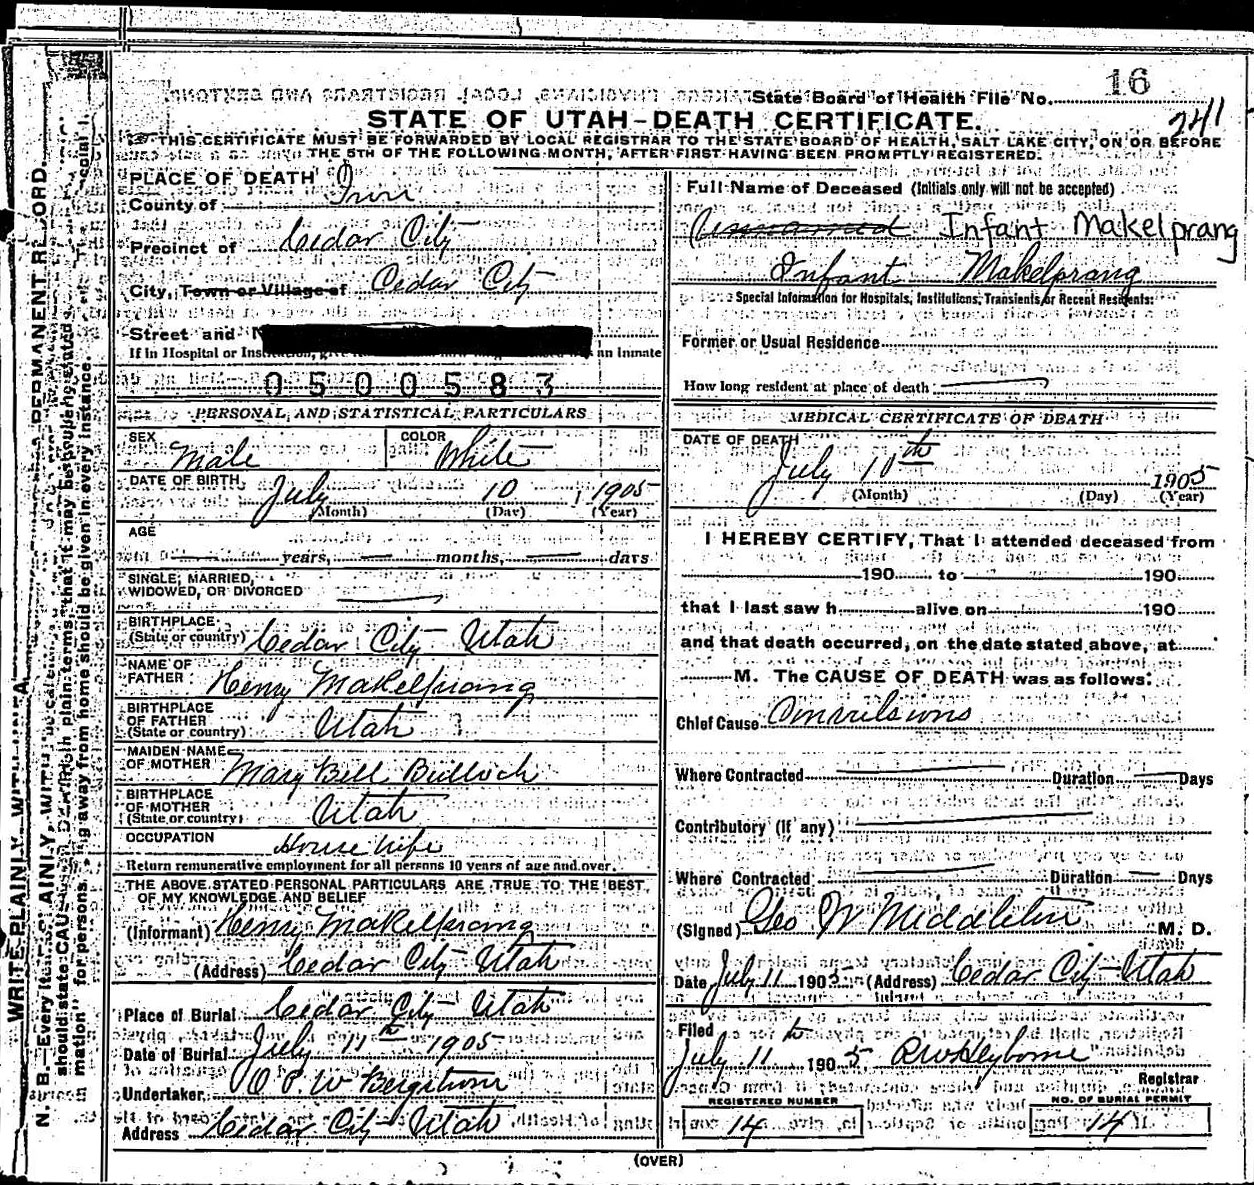 16
State Board of Health File No.
2411
STATE OF UTAH-DEATH CERTIFICATE.
THIS CERTIFICATE MUST BE FORWARDED BY LOCAL REGISTRAR TO THE STATE BOARD OF HEALTH, SALT LAKE CITY, ON OR BEFORE
THE 5TH OF THE FOLLOWING MONTH, AFTER FIRST HAVING BEEN PROMPTLY REGISTERED.
PLACE OF DEATH
County of Iron
Precinct of Cedar City
City, Town or Village of Cedar City
Street and
If in Hospital or an Inmate
0500583
PERSONAL AND STATISTICAL PARTICULARS
SEX Male COLOR White
DATE OF BIRTH July 10, 1905
(Month) (Day) (Year)
AGE
years, months, days
SINGLE, MARRIED,
WIDOWED, OR DIVORCED
BIRTHPLACE
(State or country) Cedar City Utah
NAME OF
FATHER Henry Makelprang
BIRTHPLACE
OF FATHER
(State or country) Utah
MAIDEN NAME
OF MOTHER Mary Bell Bulloch
BIRTHPLACE
OF MOTHER
(State or country) Utah
OCCUPATION House wife
Return remunerative employment for all persons 10 years of age and over.
THE ABOVE STATED PERSONAL PARTICULARS ARE TRUE TO THE BEST
OF MY KNOWLEDGE AND BELIEF
(Informant) Henry Makelprang
(Address) Cedar City Utah
Place of Burial Cedar City Utah
Date of Burial July 11th 1905
Undertaker O. P. W Bergstrom
Address Cedar City Utah
Full Name of Deceased (Initials only will not be accepted)
Unnamed Infant Makelprang
Infant Makelprang
Special Information for Hospitals, Institutions, Transients or Recent Residents:
Former or Usual Residence
How long resident at place of death
MEDICAL CERTIFICATE OF DEATH
DATE OF DEATH
July 10th 1905
(Month) (Day) (Year)
I HEREBY CERTIFY, That I attended deceased from
190 to 190
that I last saw h alive on 190
and that death occurred, on the date stated above, at
M. The CAUSE OF DEATH was as follows:
Chief Cause Convulsions
Where Contracted Duration Days
Contributory (if any)
Where Contracted Duration Days
(Signed) Geo W Middleton M. D.
Date July 11 1905 (Address) Cedar City Utah
Filed
July 11th 1905
Registrar
REGISTERED NUMBER
14
NO. OF BURIAL PERMIT
14
(OVER)